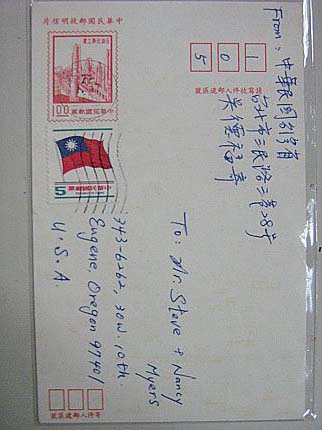 中華民國郵政明信片
石油化學工業
1.00 中華民國郵票
5 中華民國郵票
請寫收件人郵遞區號
5 0 1
From: 中華民國台灣省
市三民路三段28号
吳德福寄
To: Mr. Steve & Nancy
Myers
343-6262, 30 W. 10th.
Eugene, Oregon 97401
U.S.A.
寄件人郵遞區號